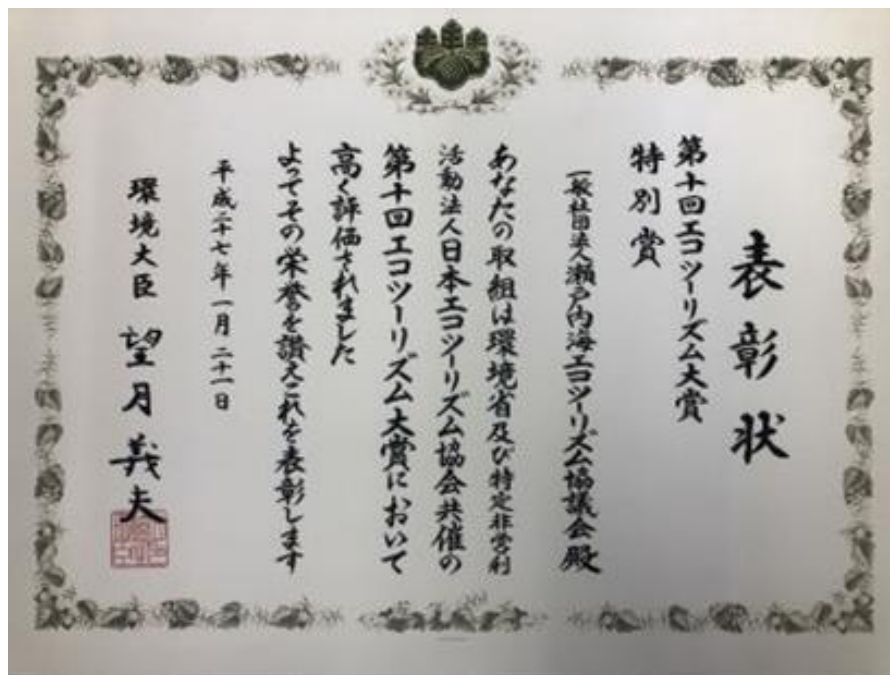 表彰状
第十回エコツーリズム大賞
特別賞
一般社団法人瀬戸内海エコツーリズム協議会殿
あなたの取組は環境省及び特定非営利
活動法人日本エコツーリズム協会共催の
第十回エコツーリズム大賞において
高く評価されました
よってその栄誉を讃えこれを表彰します
平成二十七年一月二十一日
環境大臣 望月義夫